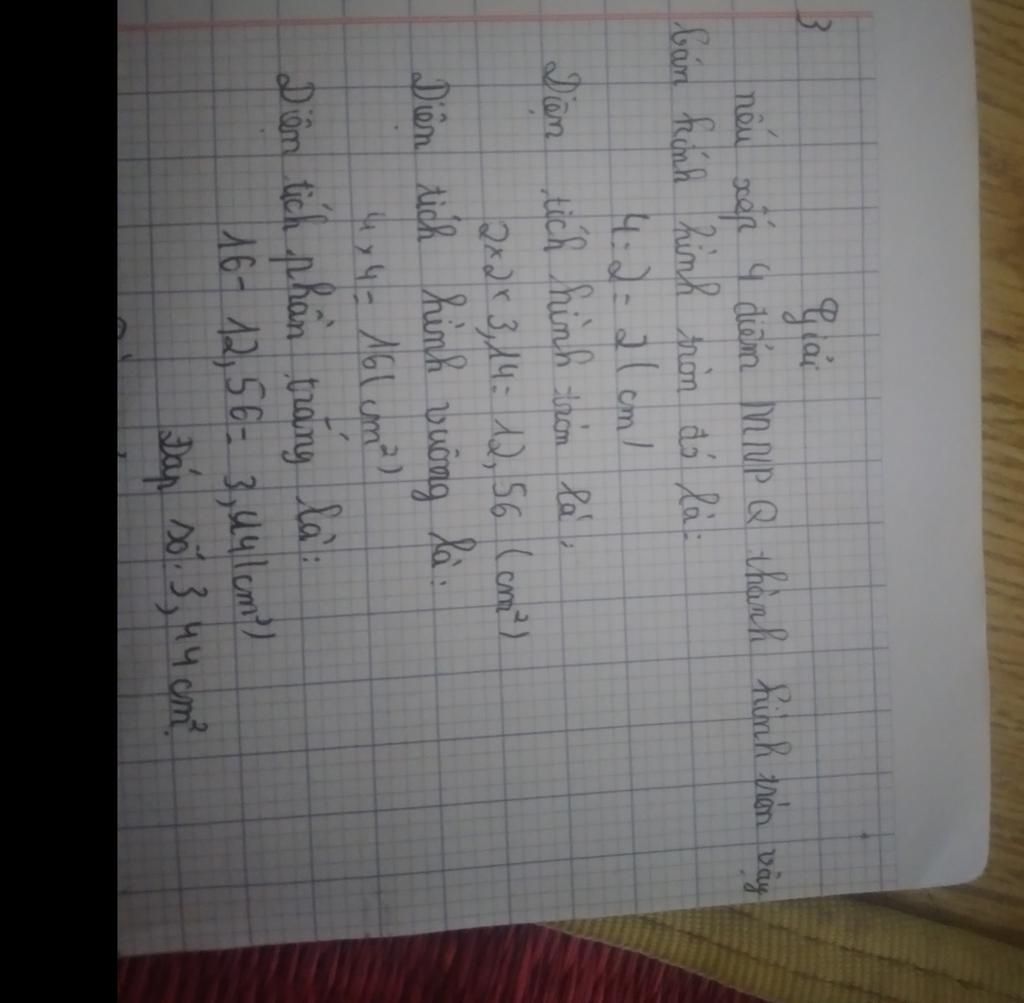 3
Giải
nếu xếp 4 điểm MNPQ thành hình tròn vậy
bán kính hình tròn đó là:
4:2=2(cm)
Diện tích hình tròn là:
2×2×3,14=12,56 (cm²)
Diên tích hình vuông là:
4×4=16(cm²)
Diện tích phần trắng là:
16-12,56=3,44(cm²)
Đáp số:3,44cm²